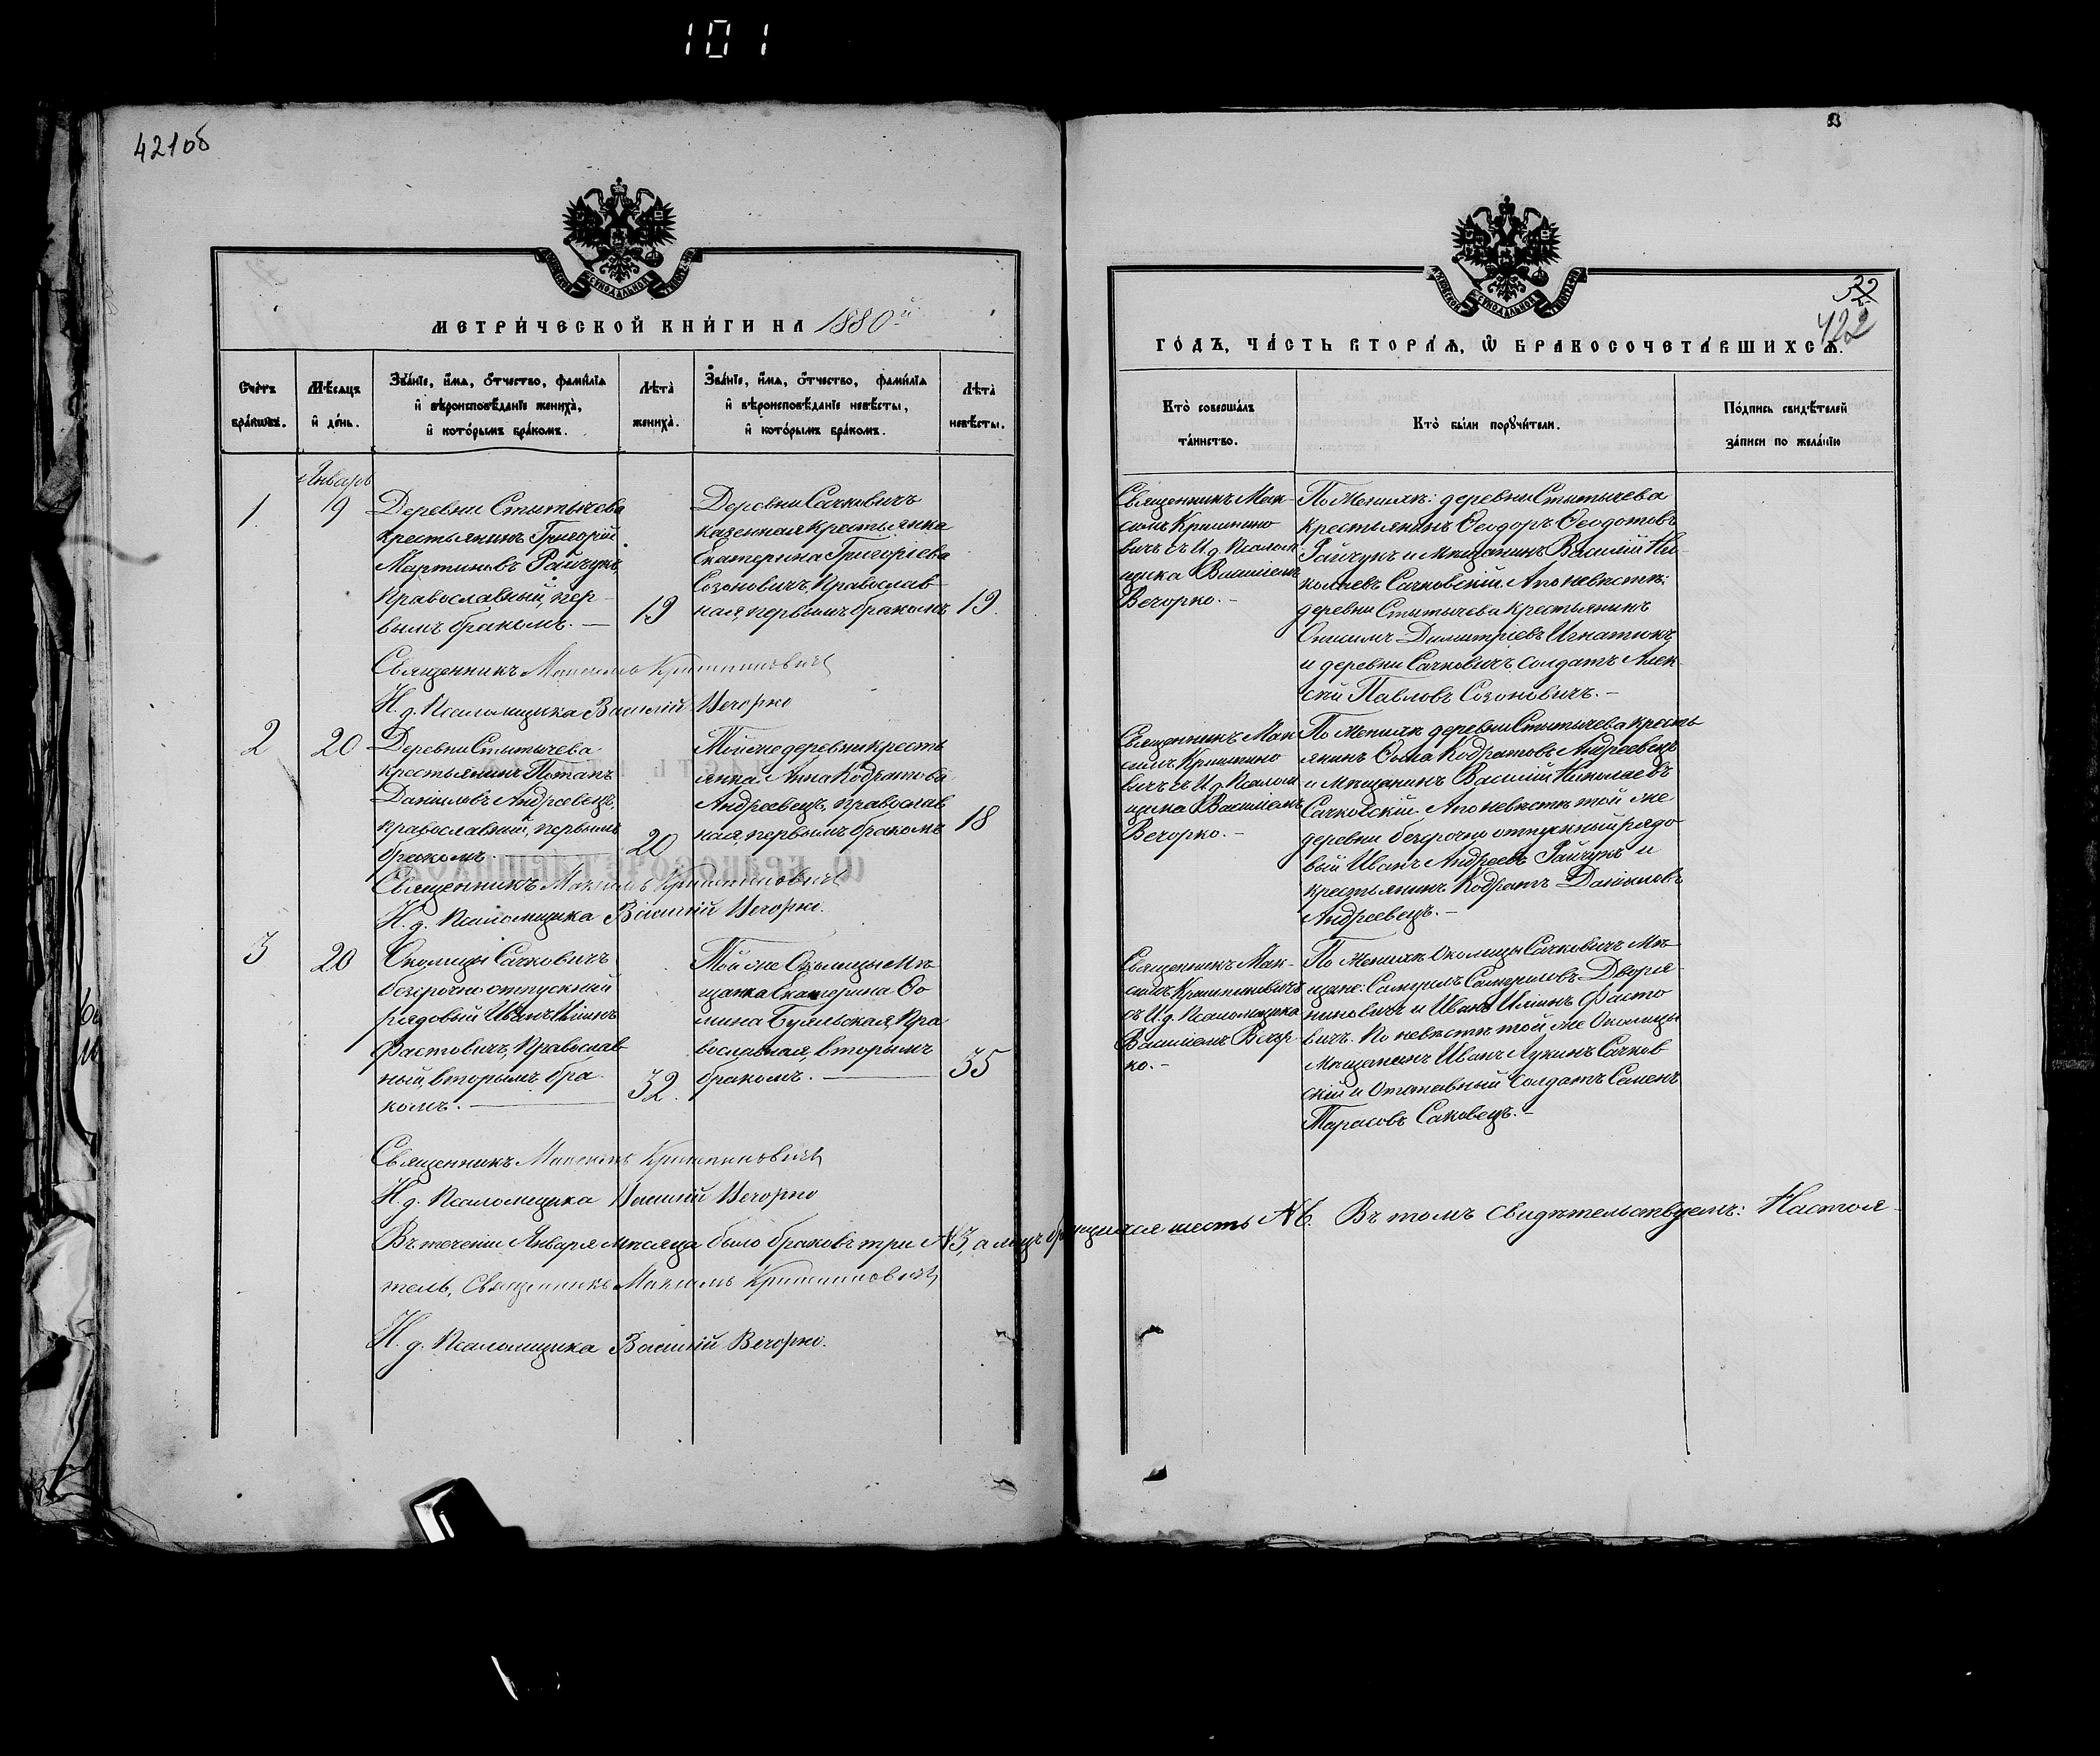 101
421 об
МЕТРИЧЕСКОЙ КНИГИ НА 1880й
Счетъ браковъ.
Мѣсяцъ и день.
Званіе, имя, отчество, фамилія
и вѣроисповѣданіе жениха,
и которымъ бракомъ.
Лѣта жениха.
Званіе, имя, отчество, фамилія
и вѣроисповѣданіе невѣсты,
и которымъ бракомъ.
Лѣта невѣсты.
Январь
1.
19
Деревни Стытычева
крестьянинъ Григорій
Мартиновъ Райчукъ,
православный, пер-
вымъ бракомъ. —
19
Деревни Сачковичъ
казенная крестьянка
Екатерина Григоріева
Созоновичъ, Православ-
ная, первымъ бракомъ
19.
Священникъ Максимъ
И. д. Псаломщика Василій Вечорко
2
20
Деревни Стытычева
крестьянинъ Потапъ
Даніиловъ Андреевецъ,
православный, первымъ
бракомъ.
20
Той же деревни кресть
янка Анна Кодратова
Андреевецъ, православ
ная, первымъ бракомъ
18
Священникъ Максимъ
И. д. Псаломщика Василій Вечорко.
3
20
Околицы Сачковичъ
безсрочно отпускный
рядовый Иванъ Илiинъ
Фастовичъ, Православ
ный, вторымъ бра-
комъ. —
32.
Той же Околицы Мѣ-
щанка Екатерина Фо
мина Буяльская, Пра
вославная, вторымъ
бракомъ. —
35
Священникъ Максимъ
И. д. Псаломщика Василій Вечорко
Въ теченіи Января мѣсяца было браковъ три №3, а лицъ
тель, Священникъ Максимъ
И. д. Псаломщика Василій Вечорко.
422
ГОДЪ, ЧАСТЬ ВТОРАЯ, Ѡ БРАКОСОЧЕТАВШИХСЯ.
Кто совершалъ
таинство.
Кто были поручители.
Подпись свидѣтелей
записи по желанію
Священникъ Мак-
вичъ съ И. д. Псалом
щика Василіемъ
Вечорко. —
По женихѣ: деревни Стытычева
крестьянинъ Ѳеодоръ Ѳеодотовъ
Райчукъ и мѣщанинъ Василій Ни-
колаевъ Сачковскій. А по невѣстѣ:
деревни Стытычева крестьянинъ
Онисимъ Димитріевъ Игнатюкъ
и деревни Сачковичъ солдатъ Алек
сѣй Павловъ Созоновичъ. —
Священникъ Мак
вичъ съ И. д. Псалом
щика Василіемъ
Вечорко. —
По женихѣ деревни Стытычева кресть
янинъ Ѳома Кодратовъ Андреевецъ
и мѣщанинъ Василій Николаевъ
Сачковскій. А по невѣстѣ той же
деревни безсрочно отпускный рядо
вый Иванъ Андреевъ Райчукъ и
крестьянинъ Кодратъ Даніиловъ
Андреевецъ. —
Священникъ Мак-
съ И. д. Псаломщика
Василіемъ Вечор-
ко. —
По женихѣ Околицы Сачковичъ Мѣ-
щане: Самуилъ Самуиловъ Дворя-
ниновичъ и Иванъ Илiинъ Фасто
вичъ. По невѣстѣ той же Околицы
Мѣщанинъ Иванъ Лукинъ Сачков
скій и Отставный Солдатъ Семенъ
Тарасовъ Саковецъ. —
шесть №6. Въ томъ свидѣтельствуемъ: Настоя-